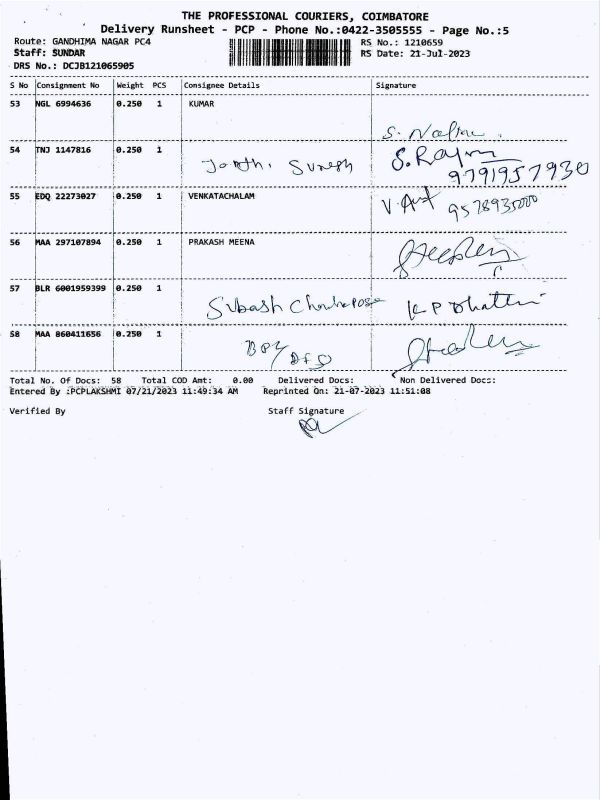 THE PROFESSIONAL COURIERS, COIMBATORE
Delivery Runsheet - PCP - Phone No.:0422-3505555 - Page No.:5
Route: GANDHIMA NAGAR PC4 RS No.: 1210659
Staff: SUNDAR RS Date: 21-Jul-2023
DRS No.: DCJB121065905
S No Consignment No Weight PCS Consignee Details Signature
53 NGL 6994636 0.250 1 KUMAR
S.
54 TNJ 1147816 0.250 1 Suresh S. Rajm
9791957930
55 EDQ 22273027 0.250 1 VENKATACHALAM V. 9578935000
56 MAA 297107894 0.250 1 PRAKASH MEENA
57 BLR 6001959399 0.250 1 Subash K P
58 MAA 860411656 0.250 1
Total No. Of Docs: 58 Total COD Amt: 0.00 Delivered Docs: Non Delivered Docs:
Entered By :PCPLAKSHMI 07/21/2023 11:49:34 AM Reprinted On: 21-07-2023 11:51:08
Verified By Staff Signature